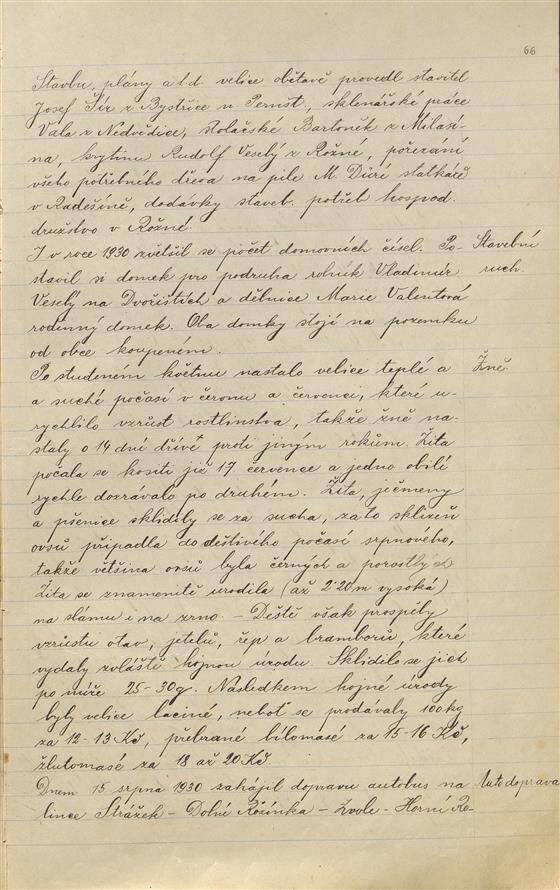 66
Stavbu, plány a t.d. velice obětavě provedl stavitel
Josef Šír z Bystřice n Pernšt., sklenářské práce
Vala z Nedvědice, stolařské Bartoněk z Milasí-
na, krytinu Rudolf Veselý z Rožné, pořezání
všeho potřebného dřeva na pile M Dürr statkář
v Radešíně, dodávky staveb. potřeb hospod.
družstvo v Rožné.
I v roce 1930 zvětšil se počet domovních čísel. Po- Stavební
stavil si domek pro podruha rolník Vladimír ruch.
Veselý na Dvořištích a dělnice Marie Valentová
rodinný domek. Oba domky stojí na pozemku
od obce koupeném.
Po studeném květnu nastalo velice teplé a Žně.
a suché počasí v červnu a červenci, které u-
rychlilo vzrůst rostlinstva, takže žně na-
staly o 14 dní dříve proti jiným rokům. Žita
počala se kositi již 17 července a jedno obilí
rychle dozrávalo po druhém. Žita, ječmeny
a pšenice sklidily se za sucha, zato sklizeň
ovsů připadla do deštivého počasí srpnového,
takže většina ovsů byla černých a porostlých
Žita se znamenitě urodila (až 2·20 m vysoká)
na slámu i na zrno. – Deště však prospěly
vzrůstu otav, jetelů, řep a bramborů, které
vydaly zvláště hojnou úrodu. Sklidilo se jich
po míře 25–30 q. Následkem hojné úrody
byly velice laciné, neboť se prodávaly 100 kg
za 12–13 Kč, přebrané bílomasé za 15–16 Kč,
žlutomasé za 18 až 20 Kč.
Dnem 15 srpna 1930 zahájil dopravu autobus na Autodoprava
lince Strážek – Dolní Rožínka – Zvole – Horní Ro-